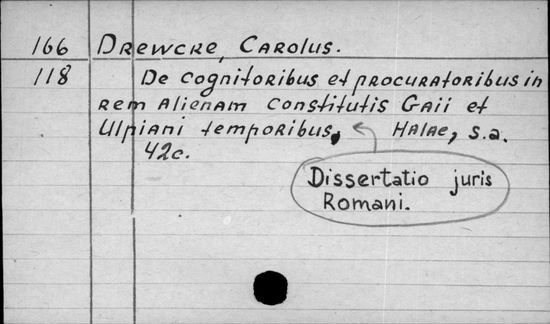 166 Drewcke, Carolus.
118 De cognitoribus et procuratoribus in
rem alienam constitutis Gaii et
Ulpiani temporibus, Halae, s.a.
42c.
Dissertatio juris
Romani.